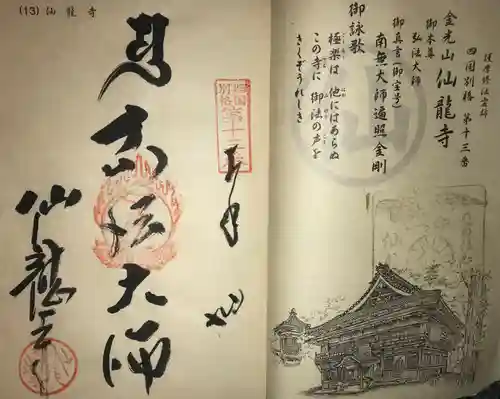 護摩修法霊跡
四国別格 第十三番
金光山 仙龍寺
御本尊
弘法大師
御真言(御宝号)
南無大師遍照金剛
御詠歌
極楽は 他にはあらぬ
この寺に 御法の声を
きくぞうれしき
(13) 仙龍寺
四国
別格
第十三番
弘法大師
仙龍寺